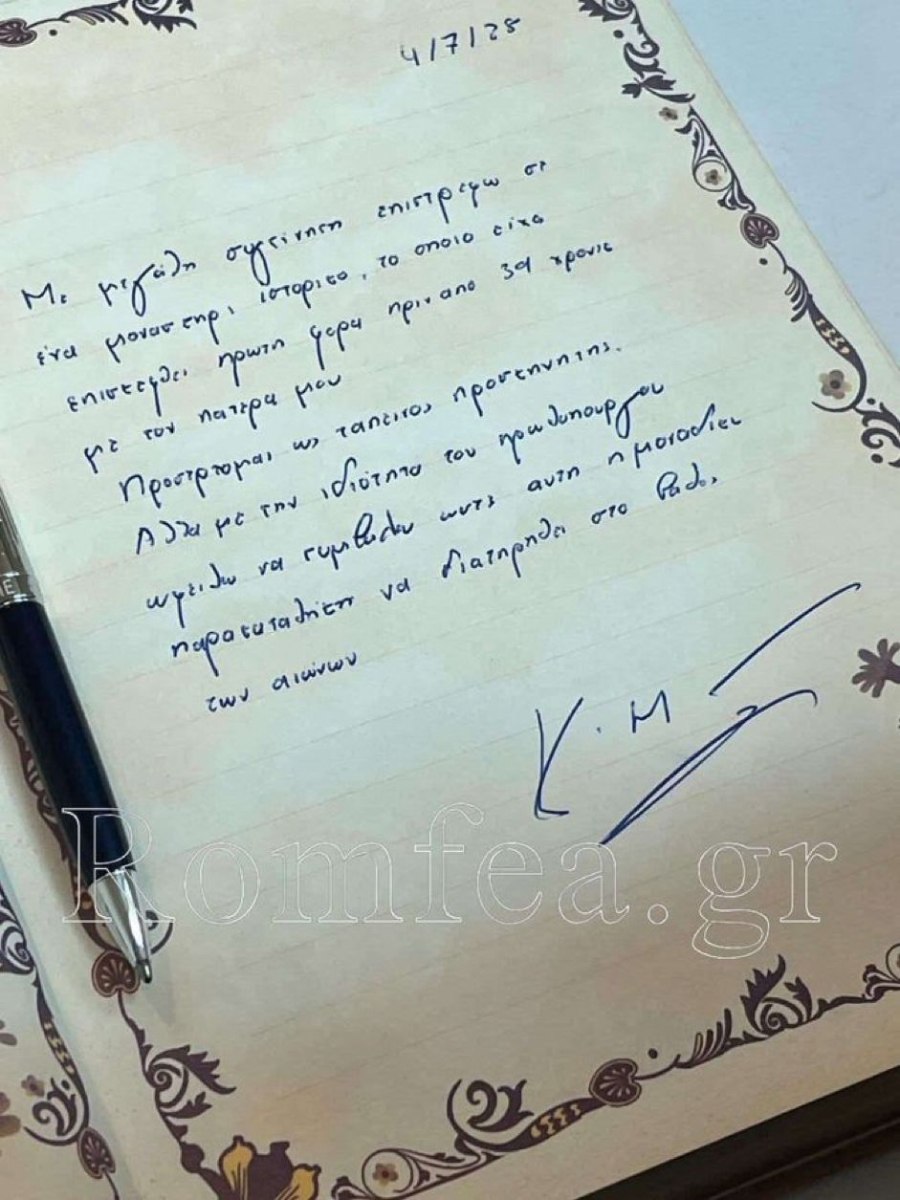 4/7/25
Με μεγάλη συγκίνηση επιστρέφω σε
ένα μοναστήρι ιστορικό, το οποίο είχα
επισκεφθεί πρωτη φορα πριν απο 39 χρονια
με τον πατέρα μου
Προσέρχομαι ως ταπεινος προσκυνητης.
Αλλα με την ιδιότητα του πρωθυπουργου
ωφειλω να συμβαλω ωστε αυτη η μοναδικη
παρακαταθηκη να διατηρηθει στο βαθος
των αιώνων
Κ. Μ
Romfea.gr